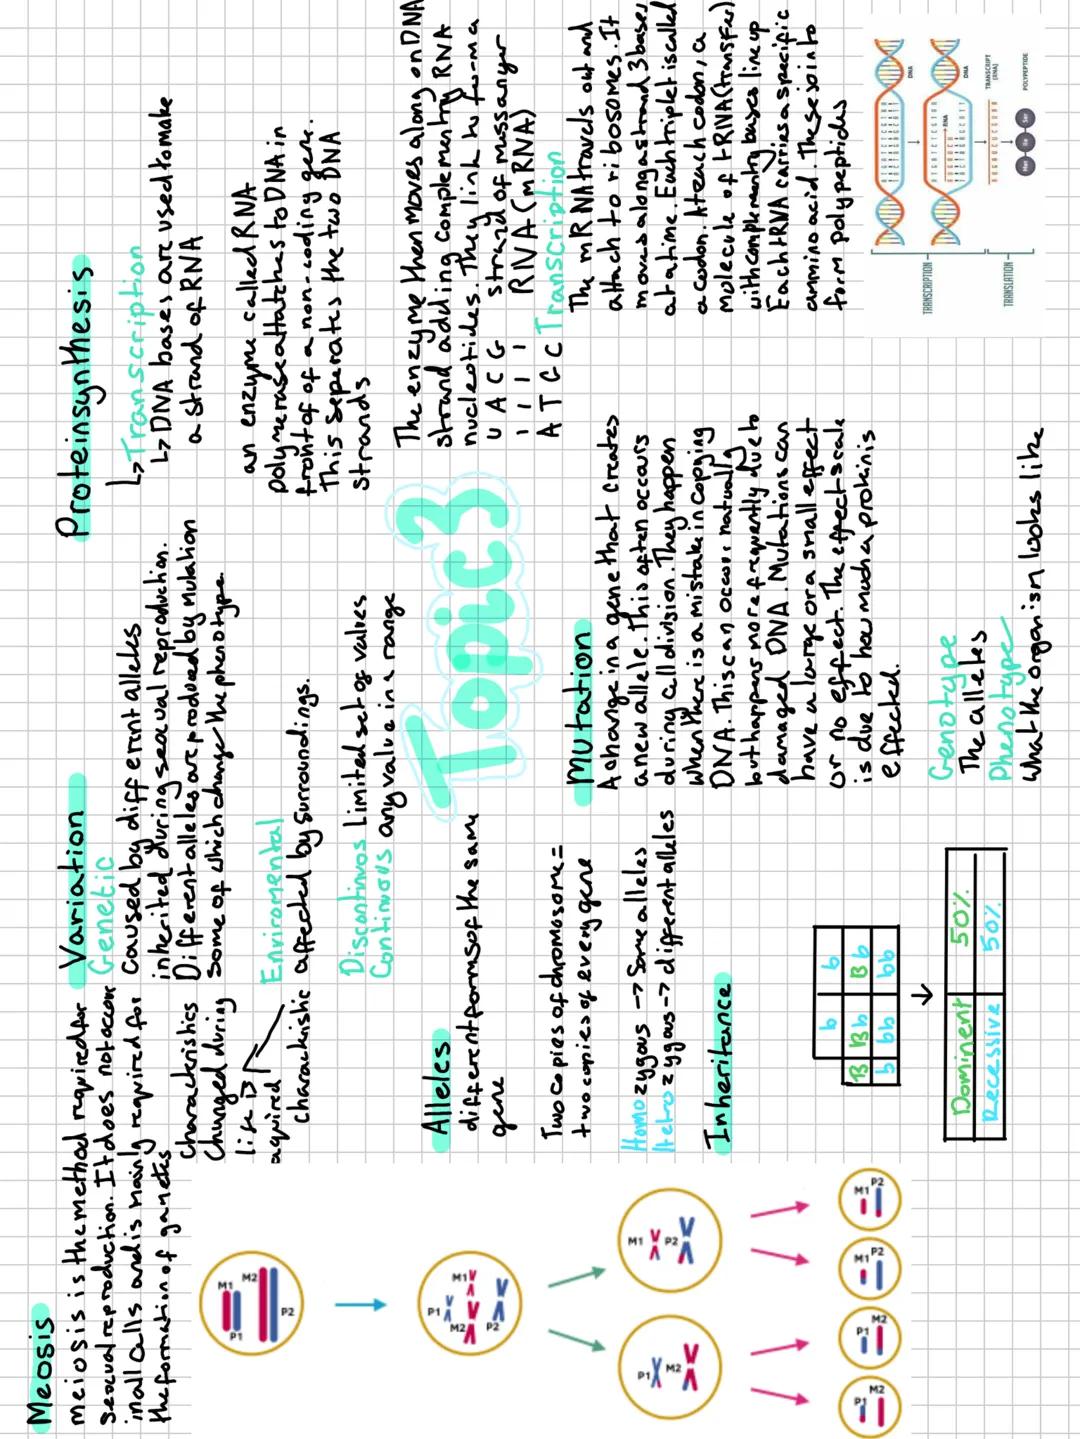 Meosis
meiosis is the method required for
sexual reproduction. It does not accor
in all cells and is mainly required for
the formation of gametes
M1
P1
M2
P2
P1
M1
M2
P2
P1
M2
M1
P2
P1
M2
P1
M2
M1
P2
M1
P2
Variation
Genetic
Caused by differnt alleles
inherited during sexual reproduction.
Different alleles are produced by mutation
some of which change the phenotype.
characteristics
changed during
life
aquired
Enviromental
characteristic affected by surroundings.
Discontinuos Limited set of values
Continuous any value in a range
Alleles
different forms of the same
gene
Two copies of chromosome =
two copies of every gene
Homozygous -> Same alleles
Hetrozygous -> different alleles
Inheritance
b b
B Bb Bb
b bb bb
Dominent 50%
Recessive 50%
Topic 3
Mutation
A change in a gene that creates
a new allele. This often occurs
during cell division. They happen
when there is a mistake in copying
DNA. This can occur naturally
but happens more frequently due to
damaged DNA. Mutations can
have a large or a small effect
or no effect. The effect scale
is due to how much a protein is
effected.
Genotype
The alleles
Phenotype
what the organism looks like
Protein synthesis
↳ Transcription
↳ DNA bases are used to make
a strand of RNA
an enzyme called RNA
polymerase attatches to DNA in
front of a non-coding gene.
This seperates the two DNA
strands
The enzyme then moves along on DNA
strand adding complementry RNA
nucleotides. They link to form a
strand of messanger
RNA (mRNA)
U A C G
A T G C
Transcription
The mRNA travels out and
attach to ribosomes. It
moves along a strand 3 bases
at a time. Each triplet is called
a codon. At each codon, a
molecule of tRNA (transfer)
with complementry bases line up
Each tRNA carries a specific
amino acid. These join to
form polypeptides
TRANSCRIPTION
TRANSLATION
DNA
RNA
DNA
TRANSCRIPT
(RNA)
POLYPEPTIDE